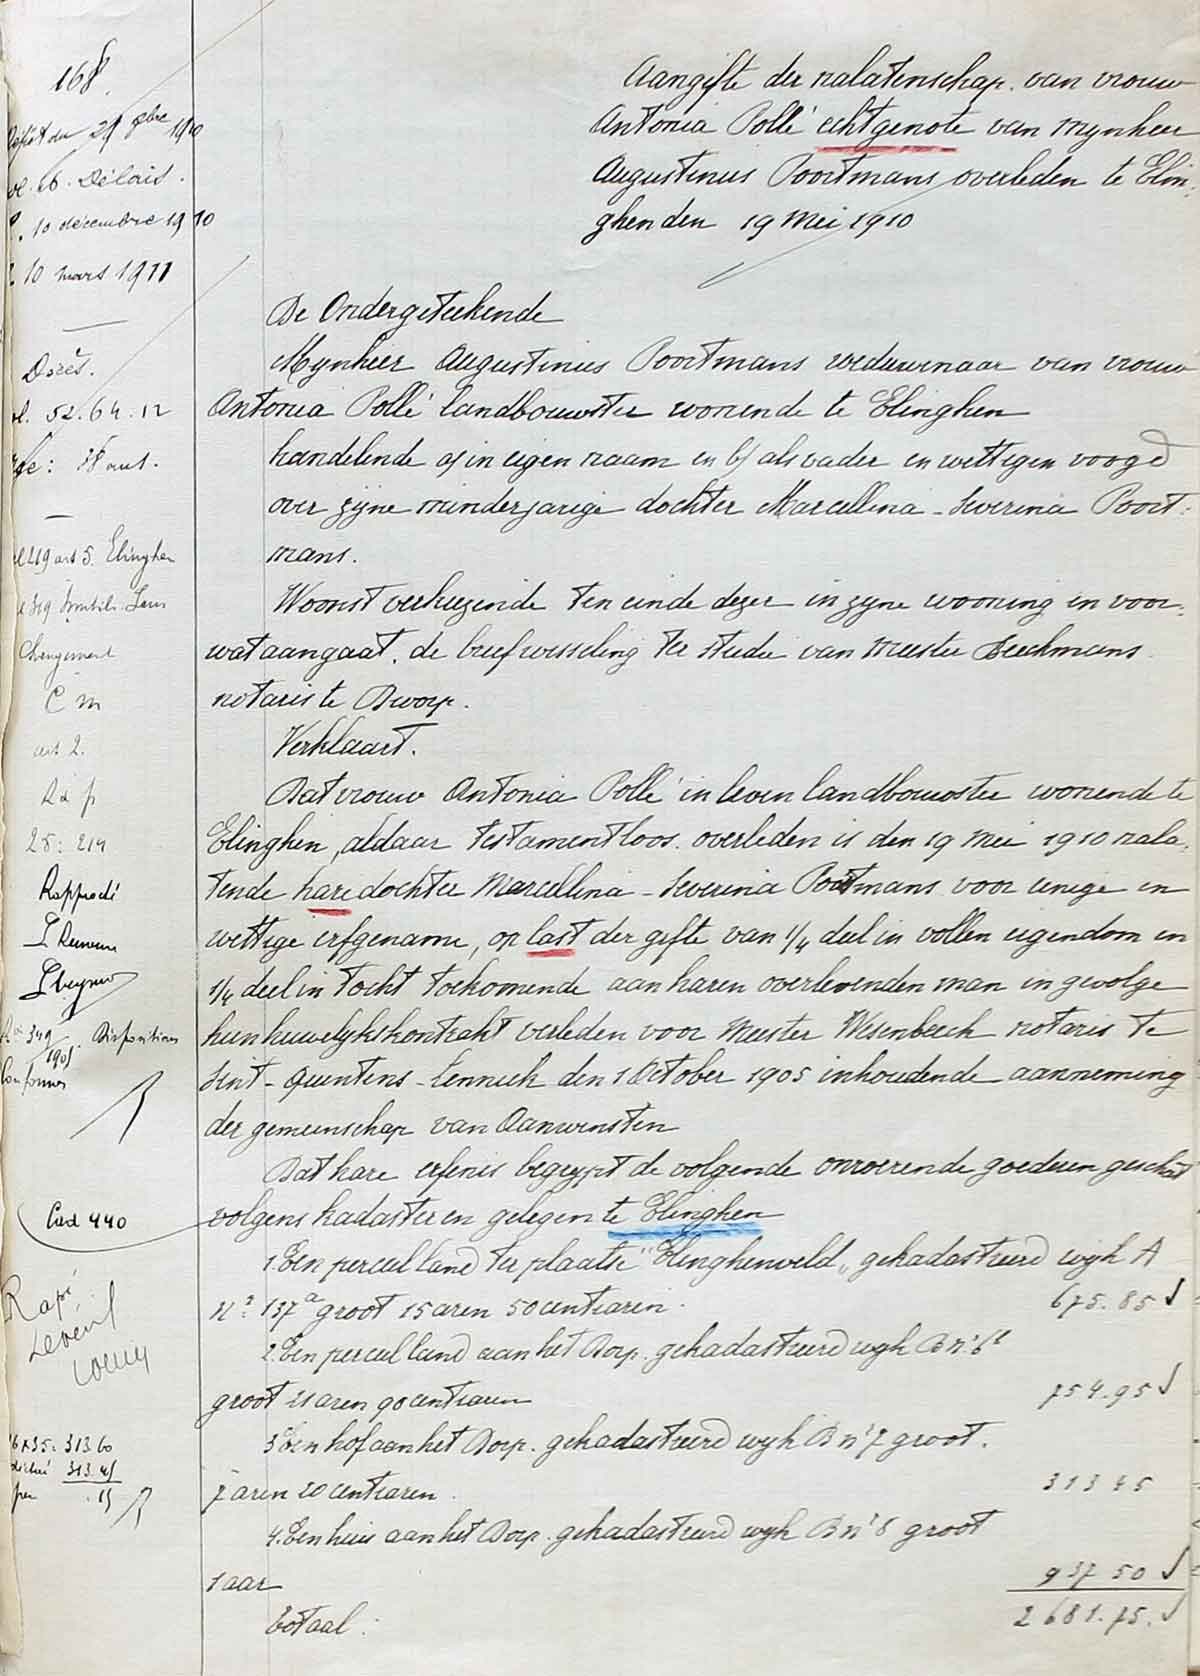 168.
Aangifte der nalatenschap. van vrouw
Antonia Pollé echtgenote van Mynheer
Augustinus Poortmans overleden te Elin-
ghen den 19 Mei 1910
Dépôt du 29 9bre 1910
vol. 26. Délais.
10 décembre 1910
10 mars 1911
De Ondergeteekende
Mynheer Augustinus Poortmans weduwenaar van vrouw
Antonia Pollé landbouwster wonende te Elinghen
handelende a/ in eigen naam en b/ als vader en wettigen voogd
over zyne minderjarige dochter Marcellina - Severina Poort-
mans.
Woonst verkiezende ten einde dezer in zyne wooning en voor
wat aangaat. de briefwisseling ter studie van Meester Beeckmans
notaris te Dworp.
Verklaart.
Dat vrouw Antonia Pollé in leven landbouwster wonende te
Elinghen, aldaar testamentloos. overleden is den 19 Mei 1910 nala-
tende hare dochter Marcellina - Severina Poortmans voor eenige en
wettige erfgename, op last der gifte van 1/4 deel in vollen eigendom en
1/4 deel in tocht toekomende aan haren overlevenden man in gevolge
hun huwelykskontrakt verleden voor Meester Wesenbeeck notaris te
Sint - Quintens - Lennick den 1 October 1905 inhoudende aanneming
der gemeenschap van Aanwinsten
Dat hare erfenis begrypt de volgende onroerende goederen geschat
volgens kadaster en gelegen te Elinghen
1. Een perceel land ter plaatse "Elinghenveld" gekadastreerd wyk A
n° 137a groot 15 aren 50 centiaren. 675.85
2. Een perceel land aan het Dorp. gekadastreerd wyk B n°
groot 21 aren 90 centiaren 754.95
3. Een hof aan het Dorp. gekadastreerd wyk B n° 7 groot.
7 aren 20 centiaren. 313 45
4. Een huis aan het Dorp. gekadastreerd wyk B n° 8 groot
1 aar 937 50
Totaal: 2681.75.
vol. 52.64.12
38 ans.
219 art 5. Elinghen
319
Changement
C m
art 2.
28: 214
349
1905 Dispositions
conformes
Cad 440
Rapé
35: 313.60
313.45
.15